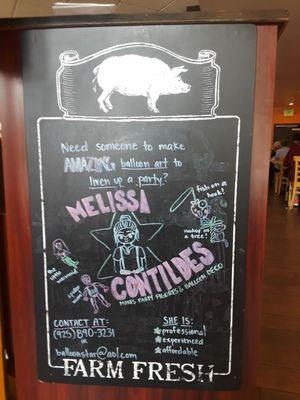 Need someone to make
AMAZING balloon art to
liven up a party?
MELISSA
fish on a
hook!
monkey in
a tree!
the little
mermaid
spider
man
CONTILDES
MAKES PARTY FIGURES & BALLOON DECO
CONTACT AT:
(925) 890-3231
or
balloonstar@aol.com
SHE IS:
professional
experienced
affordable
FARM FRESH